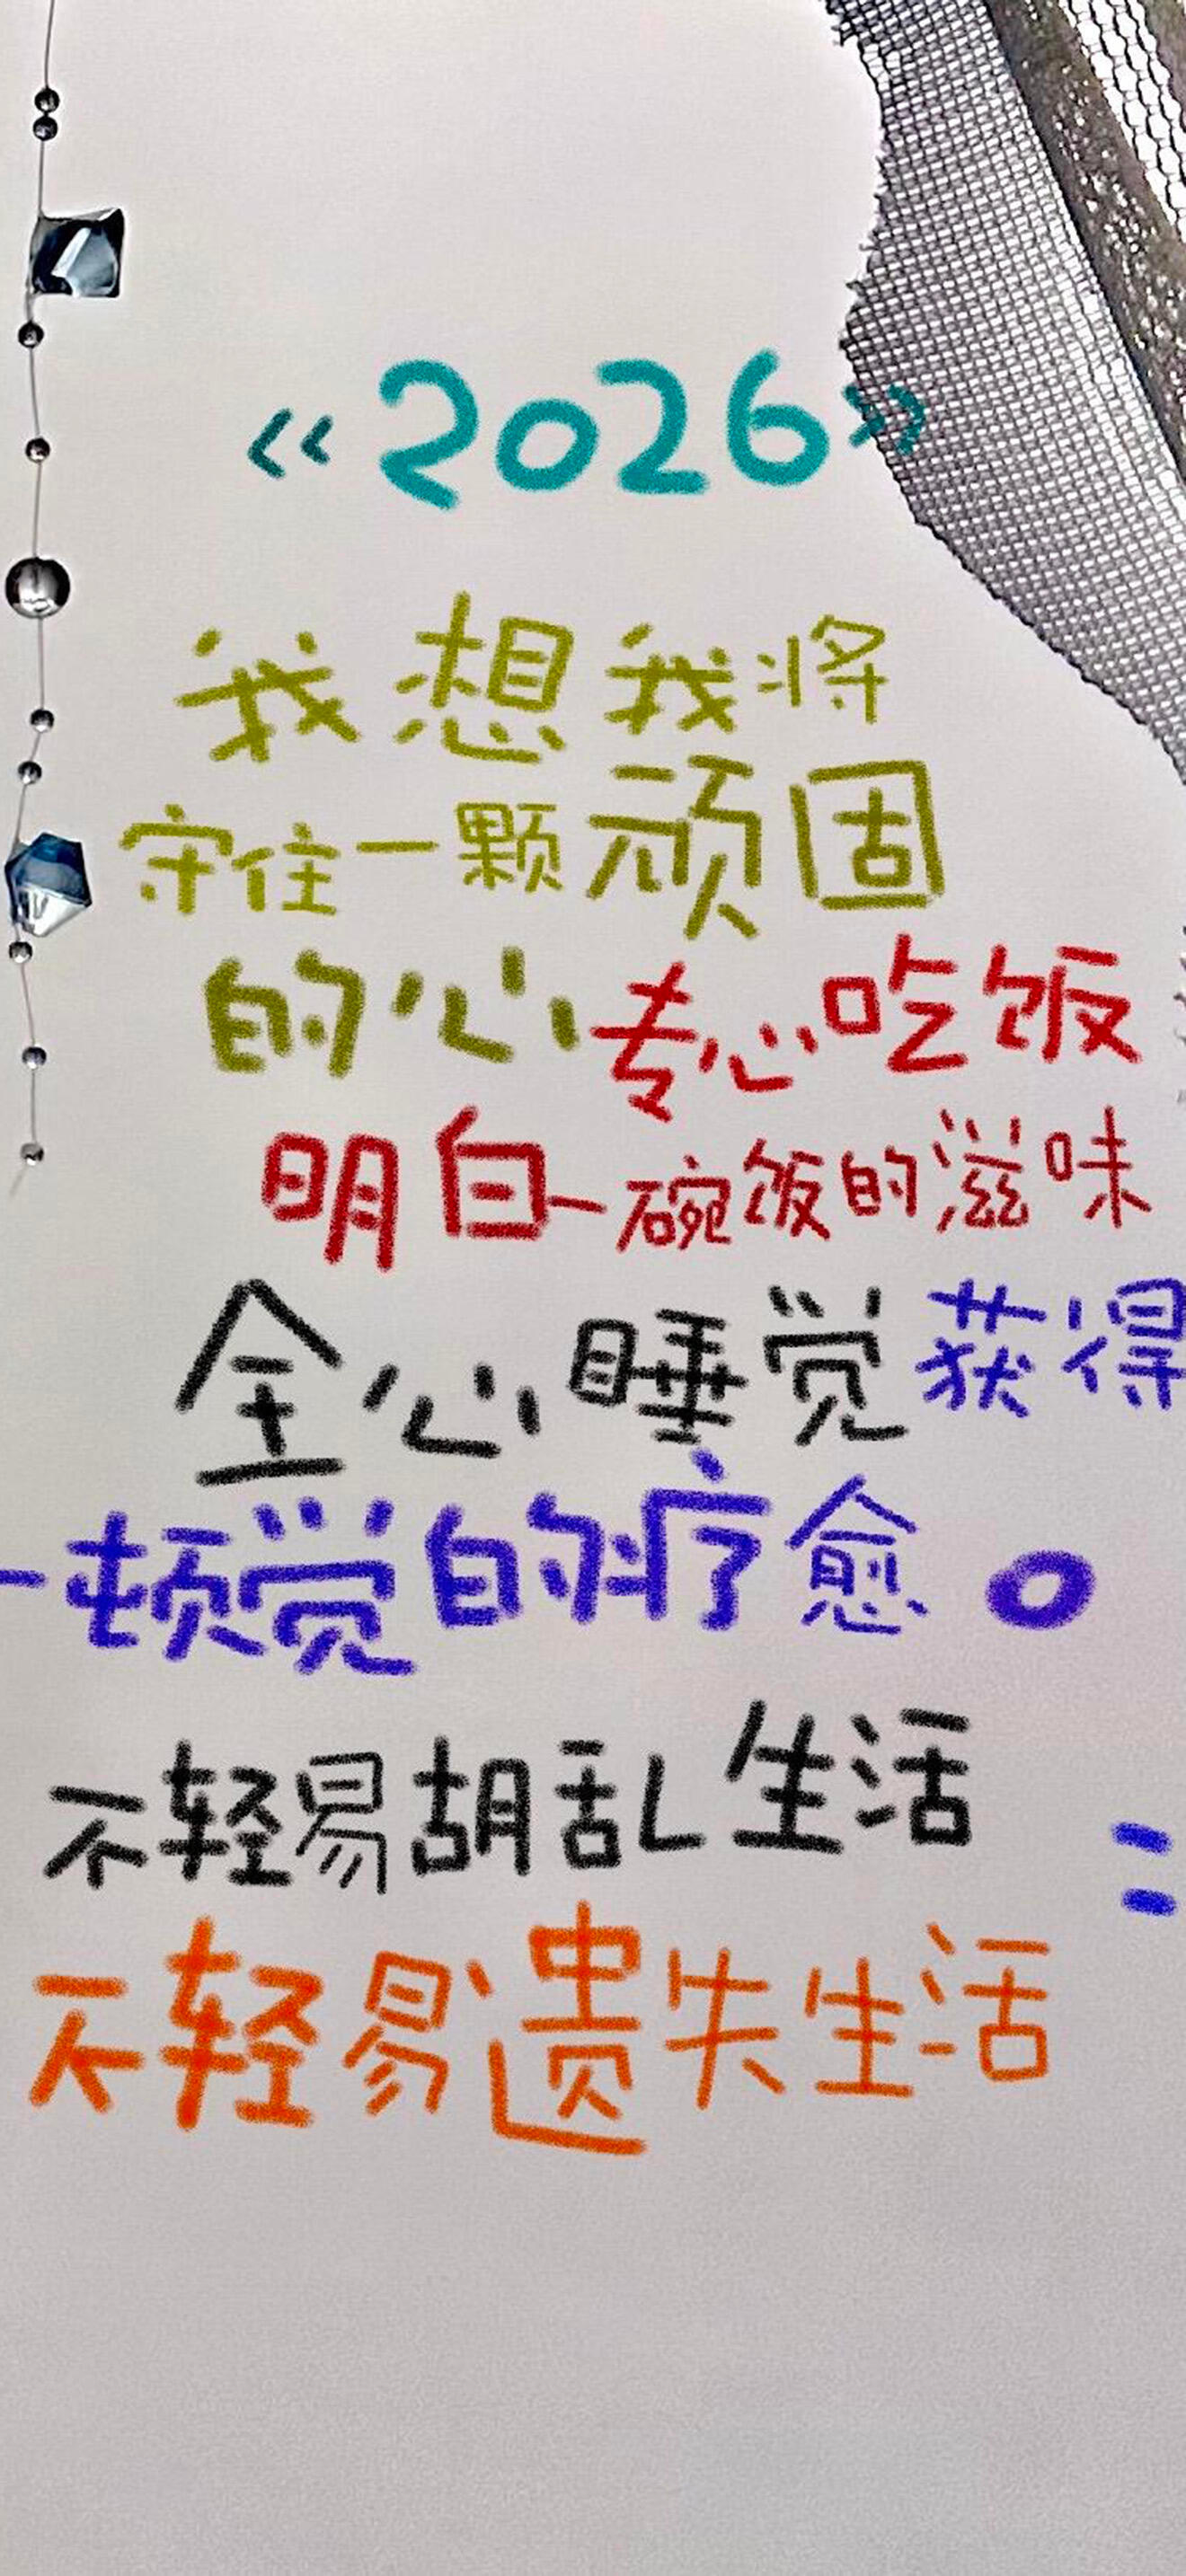 《2026》
我想我将
守住一颗顽固
的心专心吃饭
明白一碗饭的滋味
全心睡觉获得
一顿觉的疗愈。
不轻易胡乱生活
不轻易遗失生活